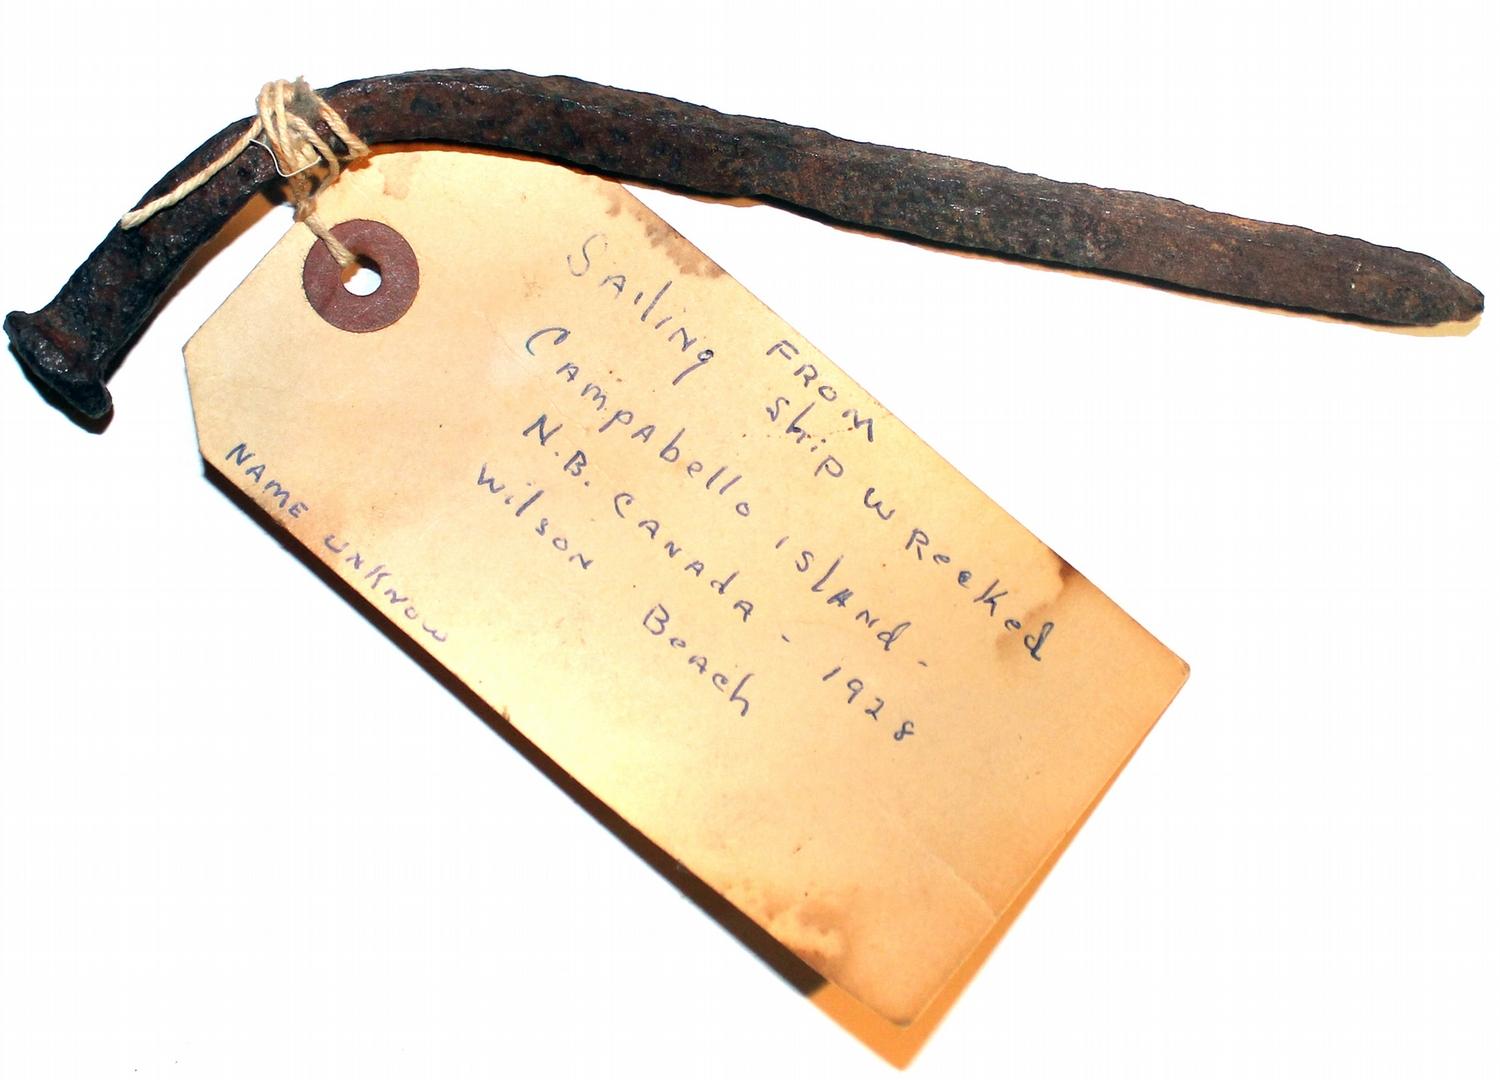 FROM
SAiling Ship wRecKed
CAmpAbello islAnd-
N.B. CANAdA - 1928
wilsoN BeAch
NAME UNKNOW